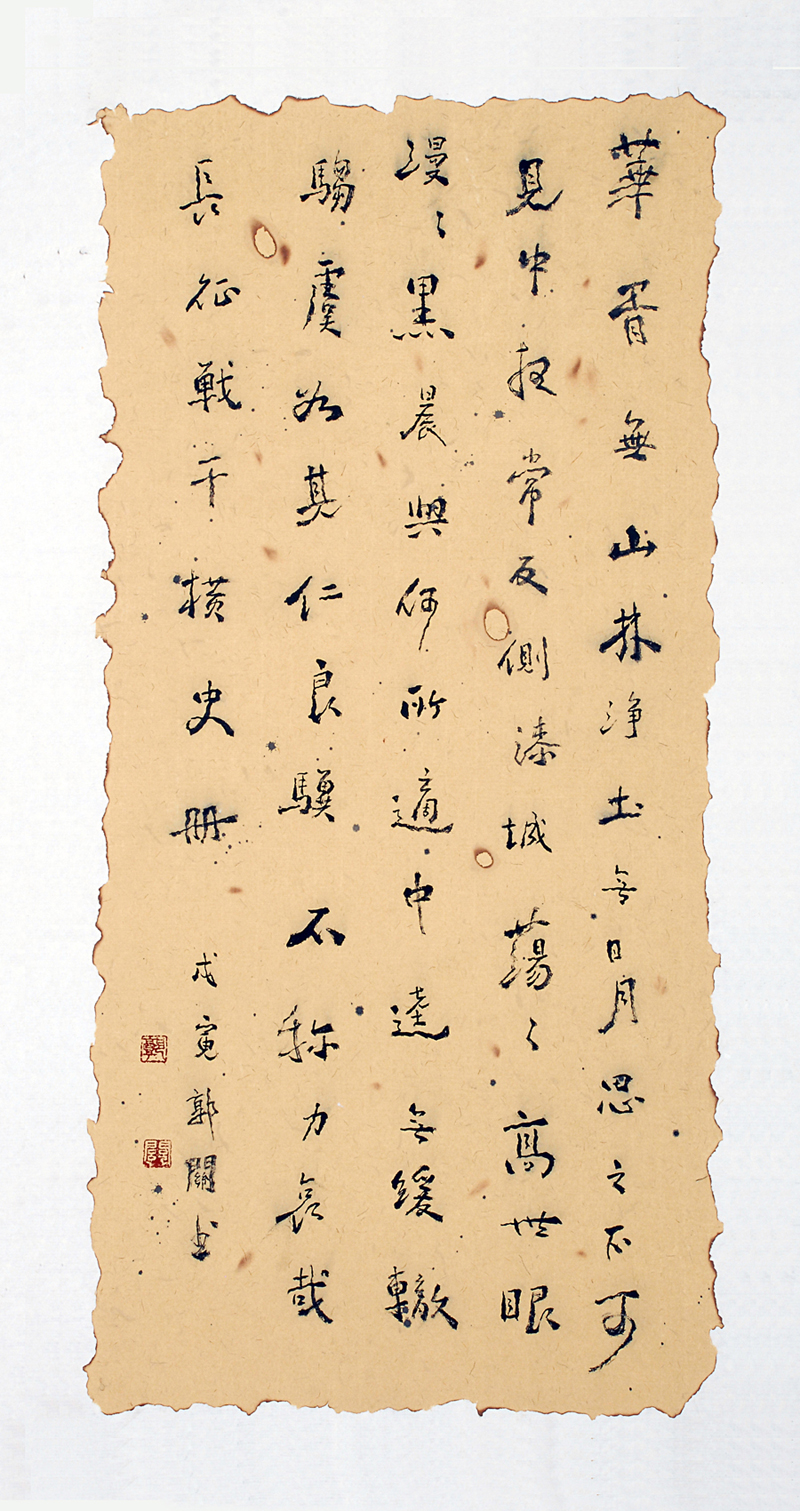 華胥無山林淨土無日月思之不可
見中夜常反側漆城蕩〻高世眼
漫〻黑晨興何所適中逵無緩轍
騶虞为其仁良驥不称力哀哉
長征戰干橫史册
戊寅郭關书